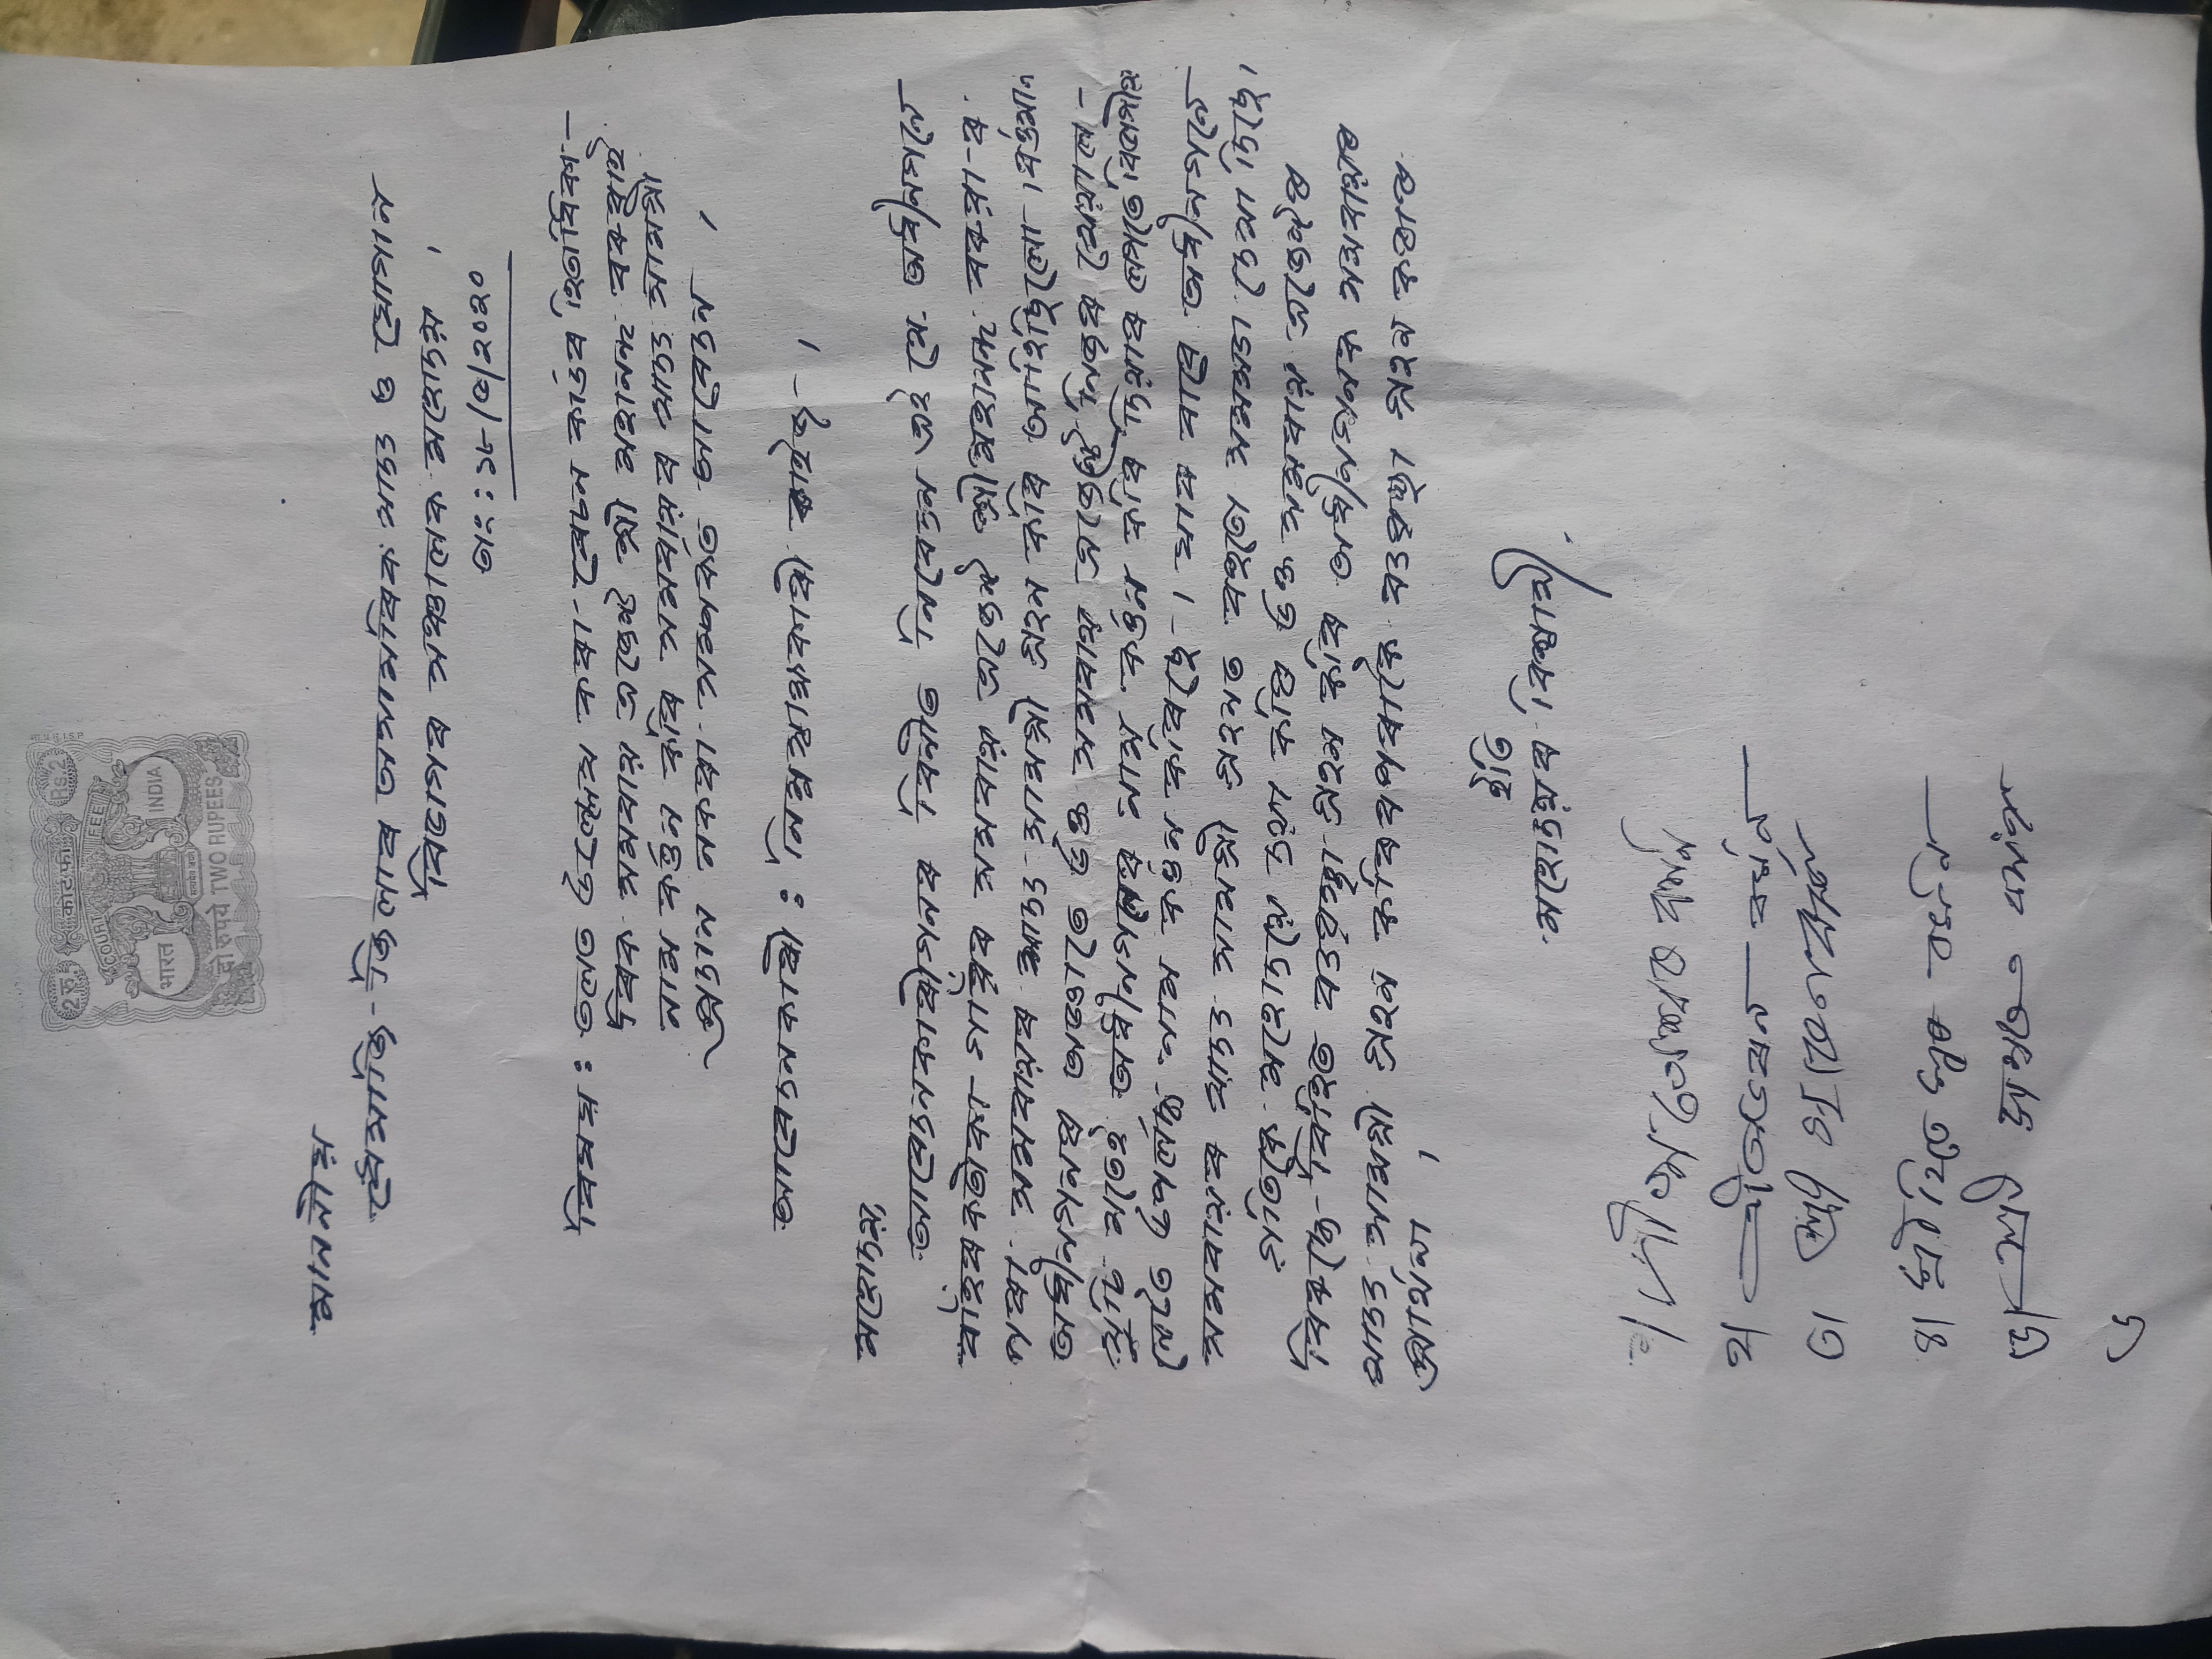 2 रु. कोर्ट फी Rs.2
COURT FEE
भारत INDIA
सत्यमेव जयते
दो रुपये TWO RUPEES
মাননীয়
ধেমাজি জিলাৰ অসামৰিক খাদ্য ও যোগান
বিভাগৰ সঞ্চালক মহোদয় ।
তাং : ১৮/৫/২০২০
বিষয় : তলত উল্লেখ কৰা ৰেচন কাৰ্ডৰ হিতাধিকা-
ৰিক সমবায় এজেণ্ট শ্ৰী মহানন্দ বৰুৱাই
নাম কৰ্ত্তন কৰি সমবায়ৰ খাদ্য সামগ্ৰী
প্ৰদান নকৰা সম্পৰ্কত আবেদন ।
আবেদনকাৰী : নিম্নস্বাক্ষকাৰী ৰাইজ ।
মহোদয়,
আবেদনকাৰীগনৰ বিনীত নিবেদন এই যে অধীনগনে
গাওঁৰ সমবায় এজেণ্ট শ্ৰীমহানন্দ বৰুৱা-ৰ
পৰা সমবায়ৰ খাদ্য সামগ্ৰী গ্ৰহন কৰি আহিছিলো । বৰ্ত্তমান
অধীনগনৰ অজ্ঞাতে উক্ত সমবায় এজেণ্টে নিজৰ খেয়াল-
খুচি মতেই অধীনগনৰ নাম কৰ্ত্তন কৰি দিয়াৰ লগতে বিভাগীয়
নেটত উপলদ্ধ নাম কৰ্ত্তন কৰিছে । যাৰ বাবে অধীনগনে
সমবায়ৰ খাদ্য সামগ্ৰী গ্ৰহনত বহুতো সমস্যা দেখা দিছে ।
গতিকে মহোদয়ে দয়া কৰি উক্ত সমবায় এজেণ্টৰ
বিৰুদ্ধে বিহিত ব্যৱস্থা গ্ৰহন কৰি অধীনগনক সমবায়ৰ
খাদ্য সামগ্ৰী গ্ৰহন কৰিবপৰাকৈ ব্যৱস্থা গ্ৰহন কৰাৰ
প্ৰাৰ্থনা ।
ইতি
মহোদয়ৰ বিশ্বাসী
১। শ্ৰী বৰ্মন
২। শ্ৰী বৰ্মন
৩। শ্ৰী
৪। শ্ৰী বৰ্মন
৫। শ্ৰী
৬